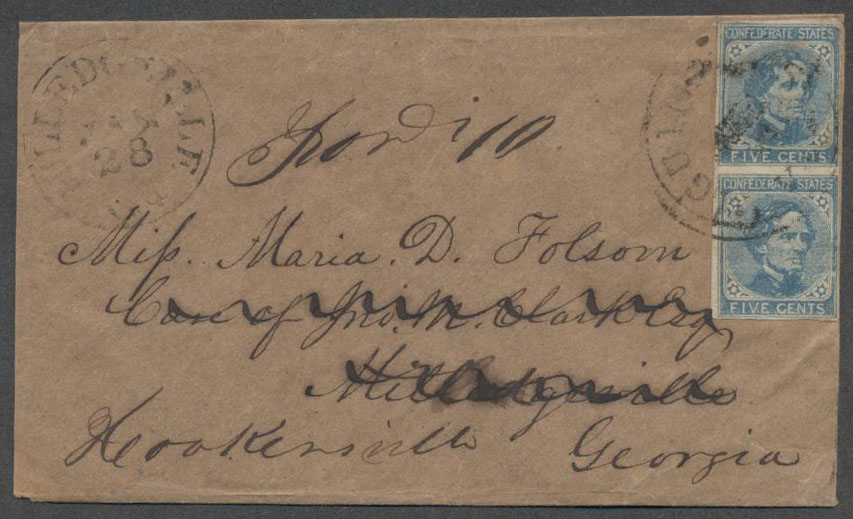 CONFEDERATE STATES
FIVE CENTS
CONFEDERATE STATES
FIVE CENTS
LLEDGEVILLE
28
Forw'd 10
Miſs. Maria. D. Folsom
Care of Jno. M. Clark Esq
Milledgeville
Hawkinsville Georgia